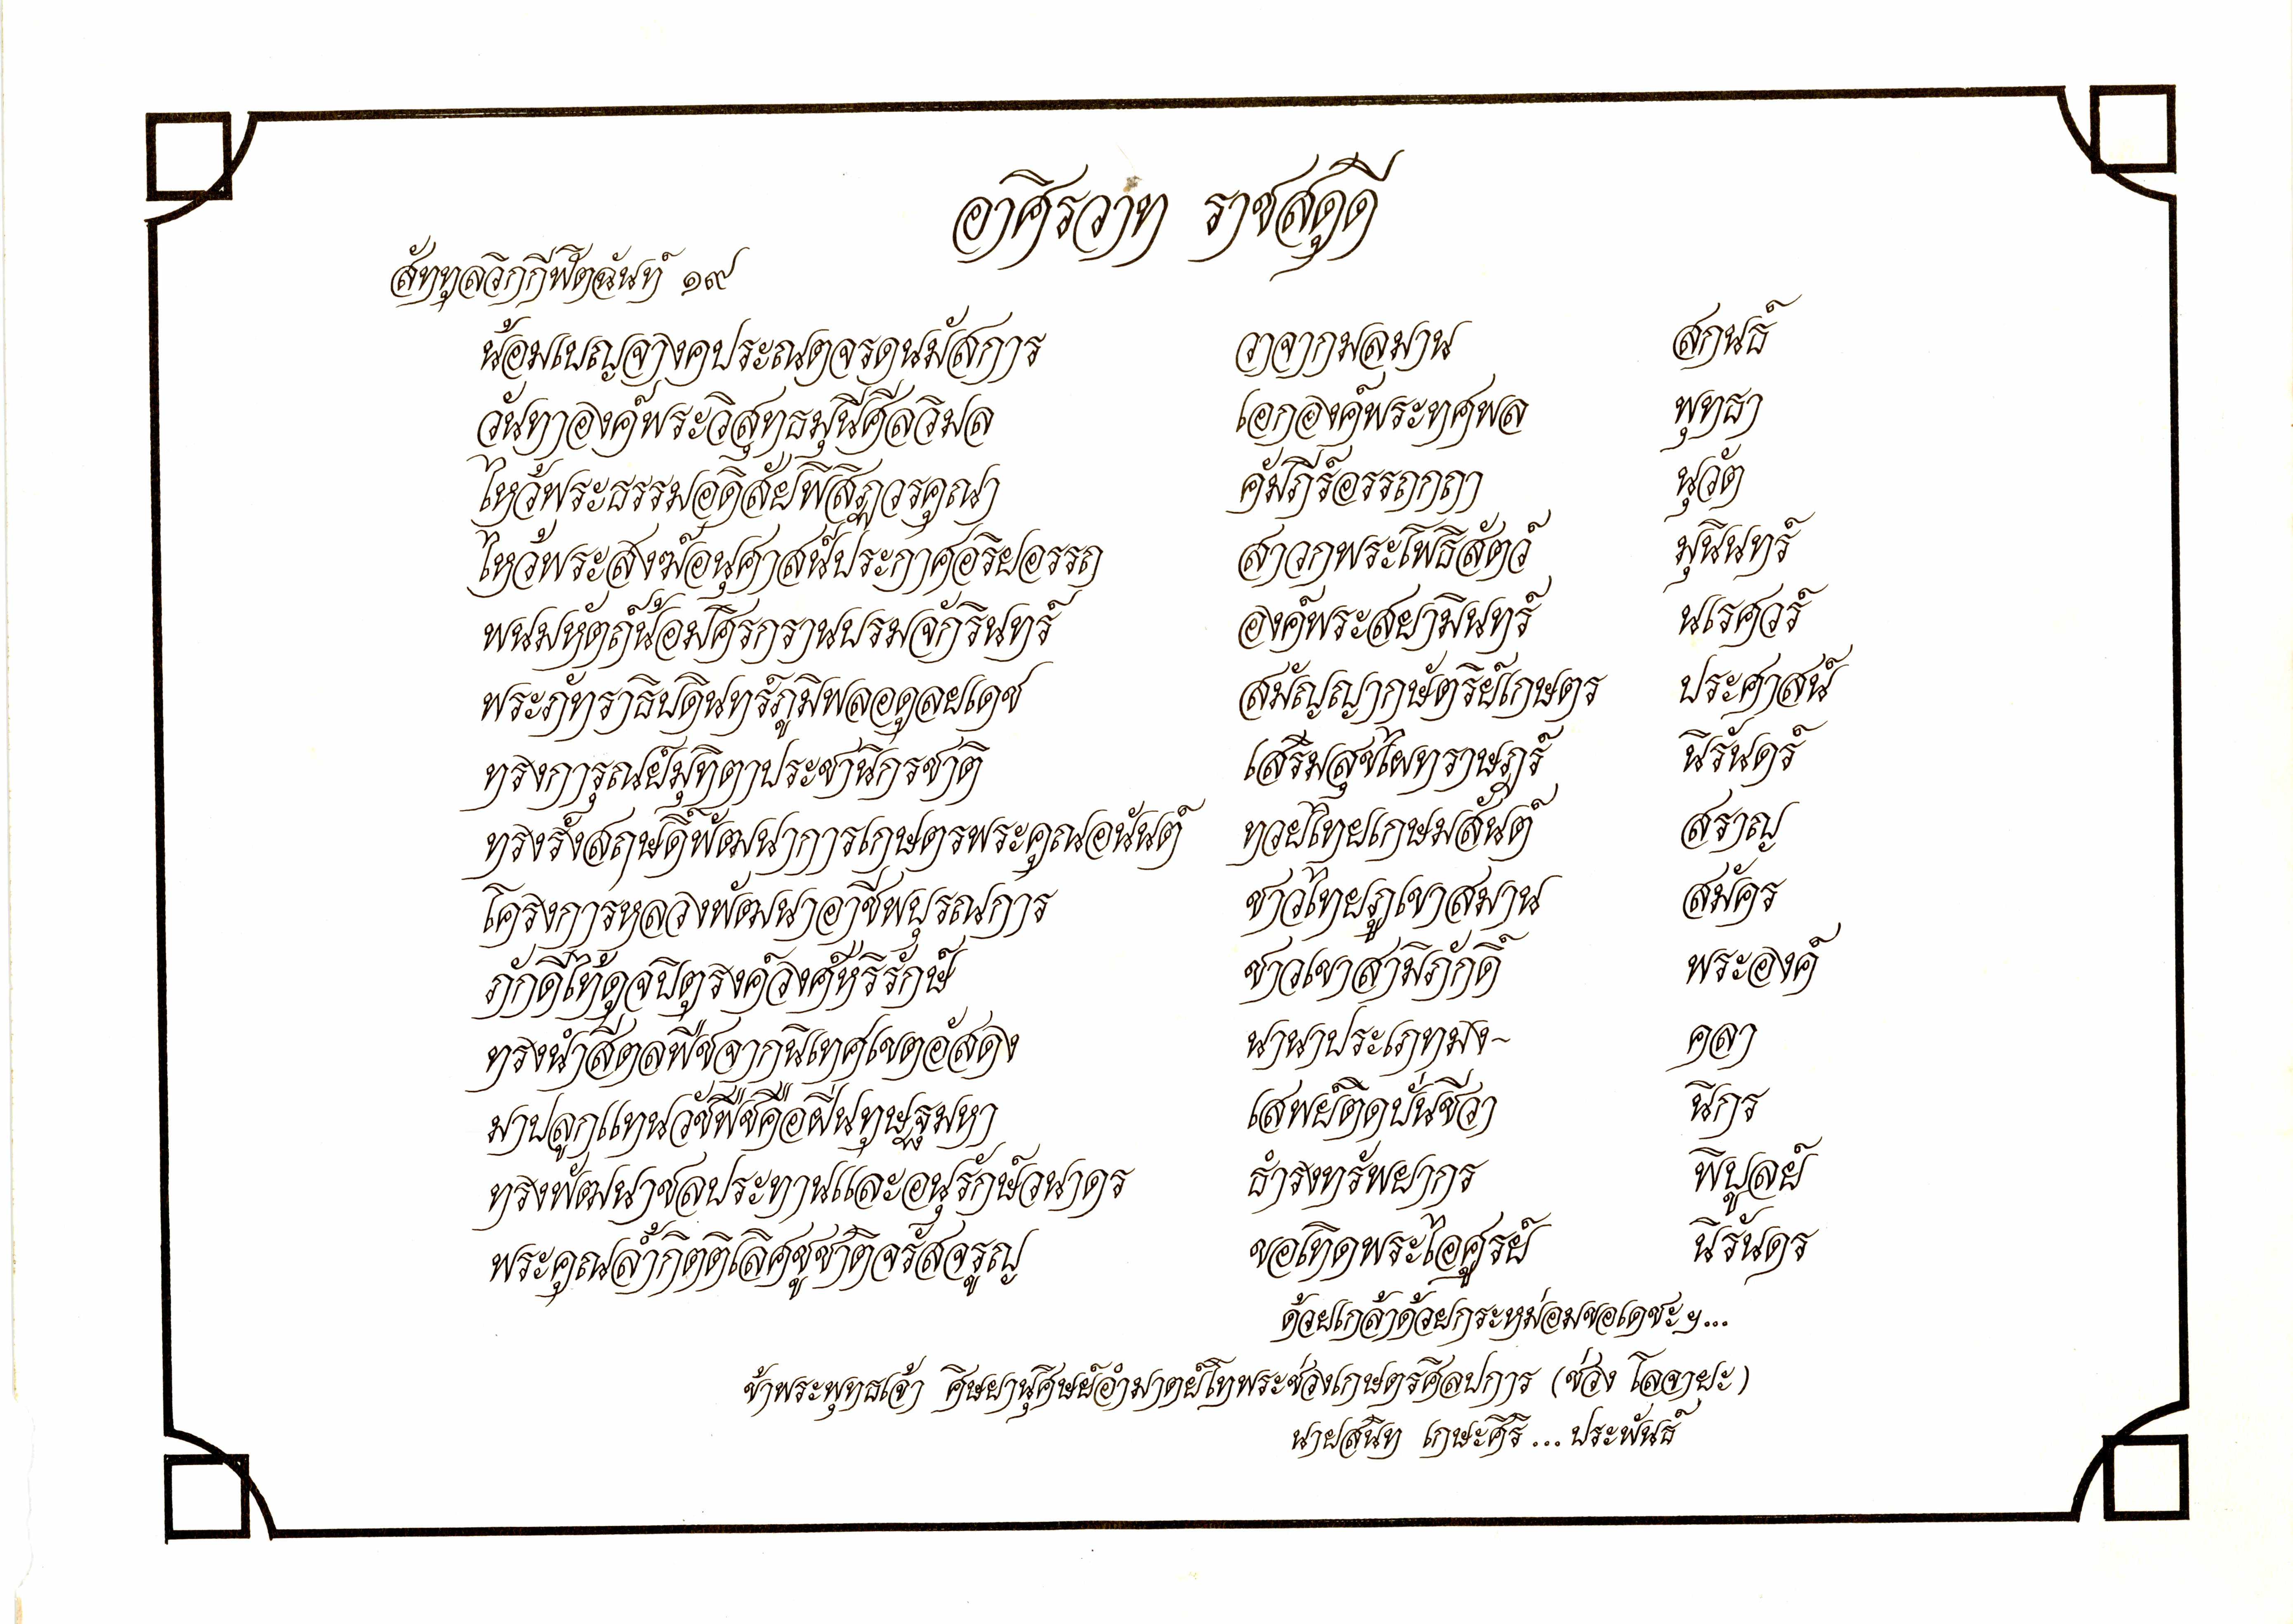 อาศิรวาท ราชสดุดี
สัททุลวิกกีฬิตฉันท์ ๑๙
น้อมเบญจางคประณตจรดนมัสการ วาจากมลมาน สกนธ์
วันทาองค์พระวิสุทธมุนีศีลวิมล เอกองค์พระทศพล พุทธา
ไหว้พระธรรมอดิสัยพิสิฏวรคุณา คัมภีร์อรรถกถา นุวัต
ไหว้พระสงฆ์อนุศาสน์ประกาศอริยอรรถ สาวกพระโพธิสัตว์ มุนินทร์
พนมหัตถ์น้อมศิรกรานบรมจักรินทร์ องค์พระสยามินทร์ นเรศวร์
พระภัทราธิบดินทร์ภูมิพลอดุลยเดช สมัญญากษัตริย์เกษตร ประศาสน์
ทรงการุณย์มุทิตาประชานิกรชาติ เสริมสุขไผทราษฎร์ นิรันดร์
ทรงรังสฤษดิ์พัฒนาการเกษตรพระคุณอนันต์ ทวยไทยเกษมสันต์ สราญ
โครงการหลวงพัฒนาอาชีพบุรณการ ชาวไทยภูเขาสมาน สมัคร
ภักดีไท้ดุจปิตุรงค์วงศ์หิริรักษ์ ชาวเขาสามิภักดิ์ พระองค์
ทรงนำสีตลพืชจากนิเทศเขตอัสดง นานาประเภทมง- คลา
มาปลูกแทนวัชพืชคือฝิ่นทุษฐมหา เสพย์ติดบั่นชีวา นิกร
ทรงพัฒนาชลประทานและอนุรักษ์วนาดร ธำรงทรัพยากร พิบูลย์
พระคุณล้ำกิตติเลิศชูชาติจรัสจรูญ ขอเทิดพระไอศูรย์ นิรันดร
ด้วยเกล้าด้วยกระหม่อมขอเดชะฯ...
ข้าพระพุทธเจ้า ศิษยานุศิษย์อำมาตย์โทพระช่วงเกษตรศิลปการ (ช่วง โลจายะ)
นายสนิท เกษะศิริ ... ประพันธ์